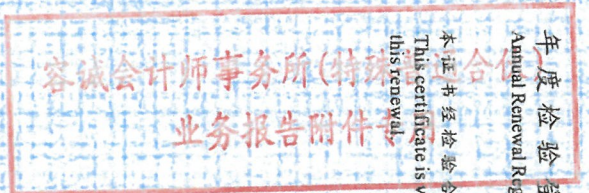 容诚会计师事务所(特殊普通合伙)
业务报告附件专用
年度检验登
Annual Renewal Reg
本证书经检验合
This certificate is v
this renewal.